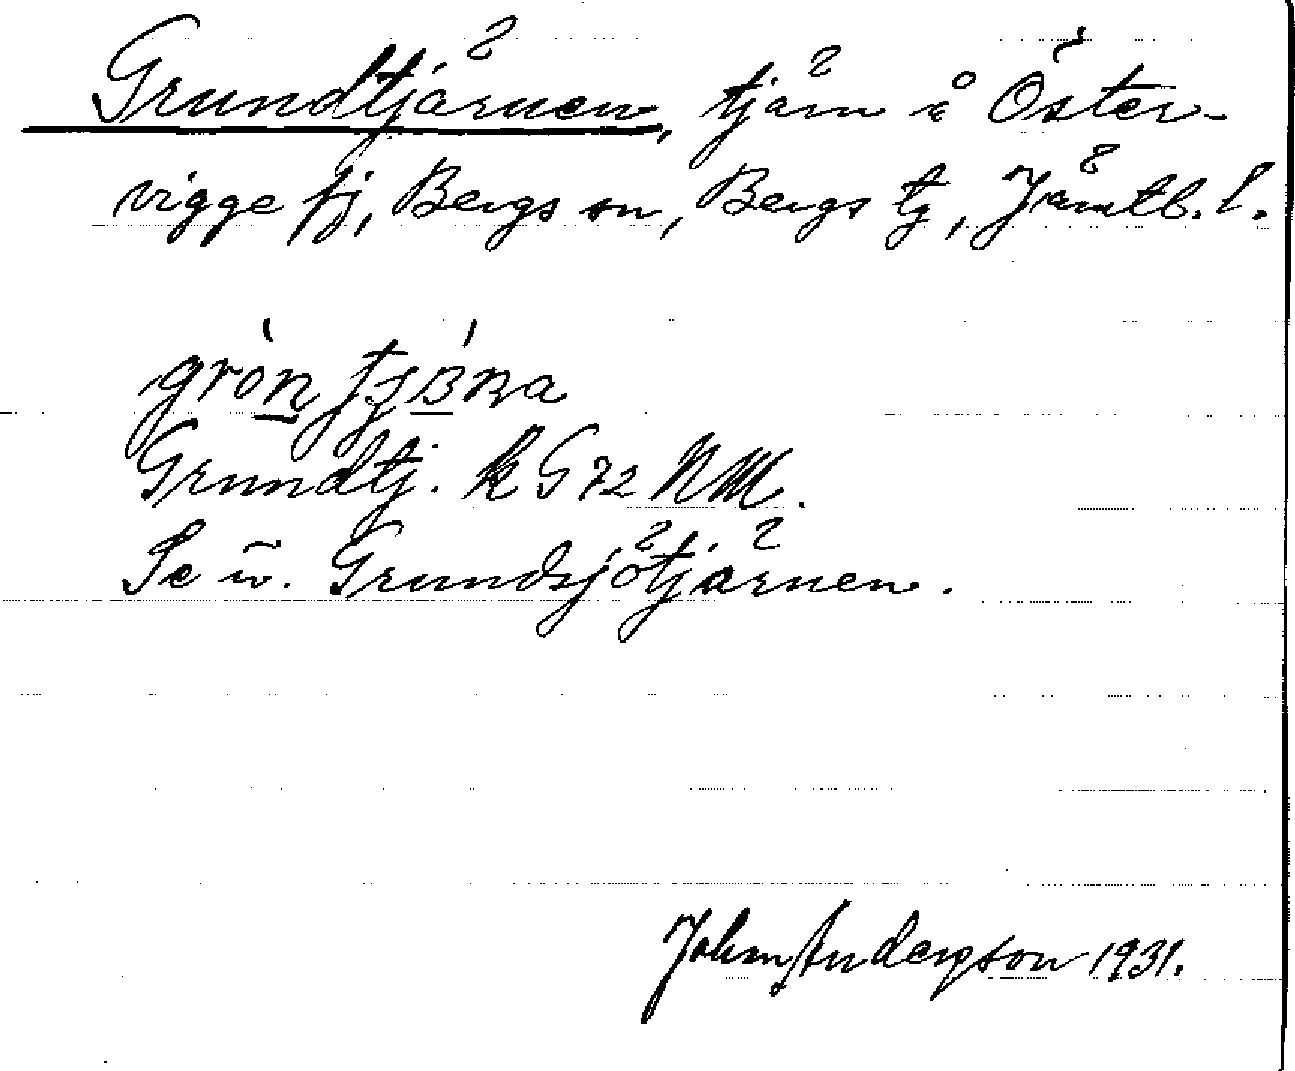 Grundtjärnen, tjärn i Öster-
vigge fj, Bergs sn, Bergs tg, Jämtl. l.
Grundtj. k G 72 NM.
Se ü. Grundsjötjärnen.
John Andersson 1931.